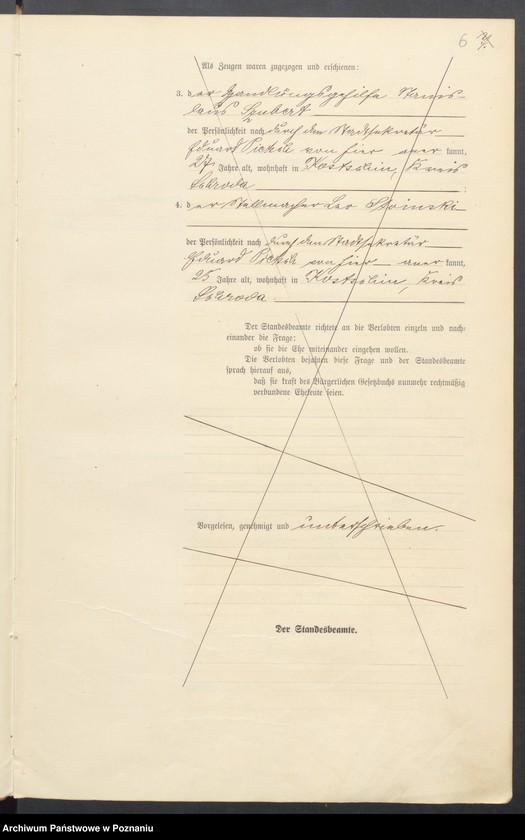 6
Als Zeugen waren zugezogen und erschienen:
3. der Handlungsgehilfe Stanis-
laus Szubert
der Persönlichkeit nach durch den Stadtsekretär
Eduard Pickel von hier anerkannt,
27 Jahre alt, wohnhaft in Kostschin, Kreis
Schroda ;
4. der Stellmacher Leo Sloinski
der Persönlichkeit nach durch den Stadtsekretär
Eduard von hier anerkannt,
25 Jahre alt, wohnhaft in Kostschin, Kreis
Schroda.
Der Standesbeamte richtete an die Verlobten einzeln und nach-
einander die Frage:
ob sie die Ehe miteinander eingehen wollen.
Die Verlobten bejahten diese Frage und der Standesbeamte
sprach hierauf aus,
daß sie kraft des Bürgerlichen Gesetzbuchs nunmehr rechtmäßig
verbundene Eheleute seien.
Vorgelesen, genehmigt und unterschrieben.
Der Standesbeamte.
Archiwum Państwowe w Poznaniu